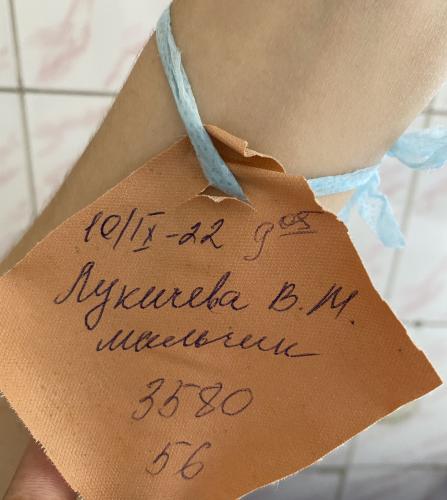 10/IX-22 9 05
Лукичева В.М.
мальчик
3580
56